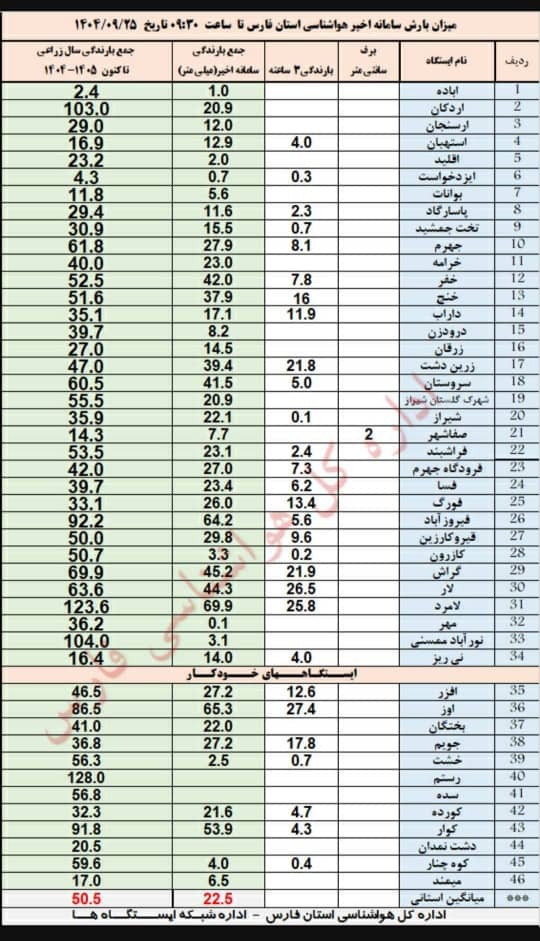 میزان بارش سامانه اخیر هواشناسی استان فارس تا ساعت ۰۹:۳۰ تاریخ ۱۴۰۴/۰۹/۲۵
ردیف نام ایستگاه برف سانتی متر بارندگی ۳ ساعته جمع بارندگی سامانه اخیر(میلی متر) جمع بارندگی سال زراعی تا کنون ۱۴۰۵-۱۴۰۴
1 اباده 1.0 2.4
2 اردکان 20.9 103.0
3 ارسنجان 12.0 29.0
4 استهبان 4.0 12.9 16.9
5 اقلید 2.0 23.2
6 ایزدخواست 0.3 0.7 4.3
7 بوانات 5.6 11.8
8 پاسارگاد 2.3 11.6 29.4
9 تخت جمشید 0.7 15.5 30.9
10 جهرم 8.1 27.9 61.8
11 خرامه 23.0 40.0
12 خفر 7.8 42.0 52.5
13 خنج 16 37.9 51.6
14 داراب 11.9 17.1 35.1
15 درودزن 8.2 39.7
16 زرقان 14.5 27.0
17 زرین دشت 21.8 39.4 47.0
18 سروستان 5.0 41.5 60.5
19 شهرک گلستان شیراز 20.9 55.5
20 شیراز 0.1 22.1 35.9
21 صفاشهر 2 7.7 14.3
22 فراشبند 2.4 23.1 53.5
23 فرودگاه جهرم 7.3 27.0 42.0
24 فسا 6.2 23.4 39.7
25 فورگ 13.4 26.0 33.1
26 فیروزآباد 5.6 64.2 92.2
27 قیروکارزین 9.6 29.8 50.0
28 کازرون 0.2 3.3 50.7
29 گراش 21.9 45.2 69.9
30 لار 26.5 44.3 63.6
31 لامرد 25.8 69.9 123.6
32 مهر 0.1 36.2
33 نورآباد ممسنی 3.1 104.0
34 نی ریز 4.0 14.0 16.4
ایستگاههای خودکار
35 افزر 12.6 27.2 46.5
36 اوز 27.4 65.3 86.5
37 بختگان 22.0 41.0
38 جویم 17.8 27.2 36.8
39 خشت 0.7 2.5 56.3
40 رستم 128.0
41 سده 56.8
42 کورده 4.7 21.6 32.3
43 کوار 4.3 53.9 91.8
44 دشت نمدان 20.5
45 کوه چنار 0.4 4.0 59.6
46 میمند 6.5 17.0
*** میانگین استانی 22.5 50.5
اداره کل هواشناسی استان فارس - اداره شبکه ایستگاه ها
اداره کل هواشناسی فارس